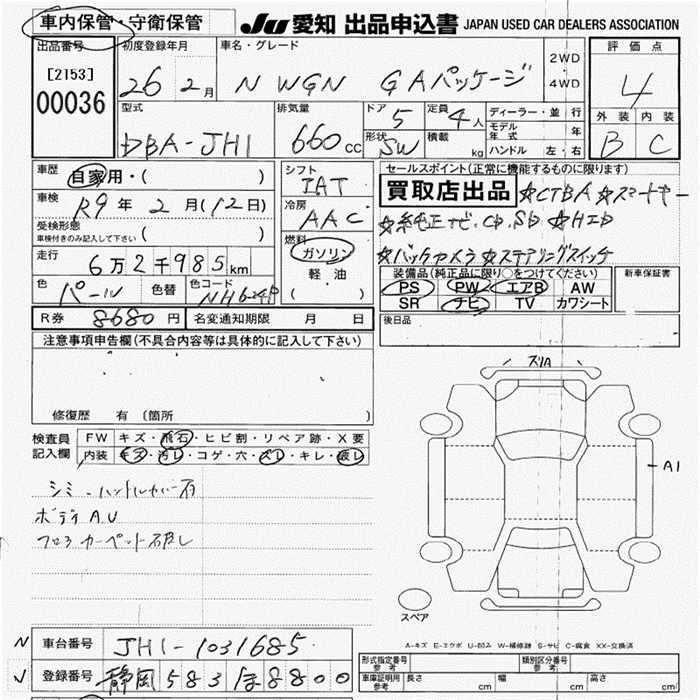 車内保管・守衛保管 JU 愛知 出品申込書 JAPAN USED CAR DEALERS ASSOCIATION
出品番号 初度登録年月 車名・グレード 2WD・4WD 評価点
[2153] 00036 26 2月 N WGN GAパッケージ 4
型式 排気量 ドア 5 定員 4人 ディーラー・並行 外装 内装
DBA-JH1 660cc 形状 SW 積載 kg モデル年式 年 B C
ハンドル 左・右
車歴 自家用・( ) シフト IAT セールスポイント(正常に機能するものに限ります)
車検 R9年 2月(12日) 冷房 AAC 買取店出品 ☆CTBA ☆スマートキー
受検形態 ( ) ☆純正ナビ.CD.SD ☆HID
車検付きのみ記入して下さい 燃料 ガソリン ☆バックカメラ ☆ステアリングスイッチ
走行 6万2千985km 軽油 装備品(純正品に限り○をつけてください) 新車保証書
色 パール 色替 色コード NH624P ( ) PS PW エアB AW
SR ナビ TV カワシート
R券 8680円 名変通知期限 月 日 後日品
注意事項申告欄(不具合内容等は具体的に記入して下さい)
修復歴 有(箇所
ズリA
A1
検査員記入欄 FW キズ・飛石・ヒビ割・リペア跡・X要
内装 キズ・汚レ・コゲ・穴・スレ・キレ・破レ
シミ・ハンドルカバー有
ボディA.U
フロアカーペット破レ
スペア
A-キズ E-エクボ U-凹み W-補修跡 S-サビ C-腐食 XX-交換済
N 車台番号 JH1-1031685 形式指定番号 参考 類別区分番号 参考
登録番号 静岡 583 ほ 8800 車庫証明用 参考 長さ cm 幅 cm 高さ cm